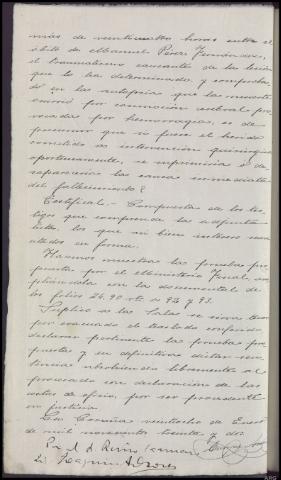 más de veinticuatro horas entre el
óbito de Manuel Pérez Fernández,
el traumatismo causante de la lesión
que lo ha determinado, y comproba-
do en la autopsia que la muerte
ocurrió por conmoción cerebral pro-
vocada por hemorragia, es de
presumir que si fuese el herido
sometido a intervención quirúrgica
oportunamente, se suprimiría o de-
saparecería la causa inmediata
del fallecimiento?
Testifical.- Compuesta de los tes-
tigos que comprende la adjunta
lista, los que si bien
citados en forma.
Hacemos nuestras las pruebas pro-
puestas por el Ministerio Fiscal, am-
pliándola con la documental de
los folios 24, 90 vto a 92 y 93.
Suplico a la Sala se sirva tener
por evacuado el traslado conferido,
declarar pertinente las pruebas pro-
puestas y en definitiva dictar sen-
tencia absolviendo libremente al
procesado con declaración de las
costas de oficio, por ser procedente
en justicia.
La Coruña veintiocho de Enero
de mil novecientos treinta y dos.
ARG